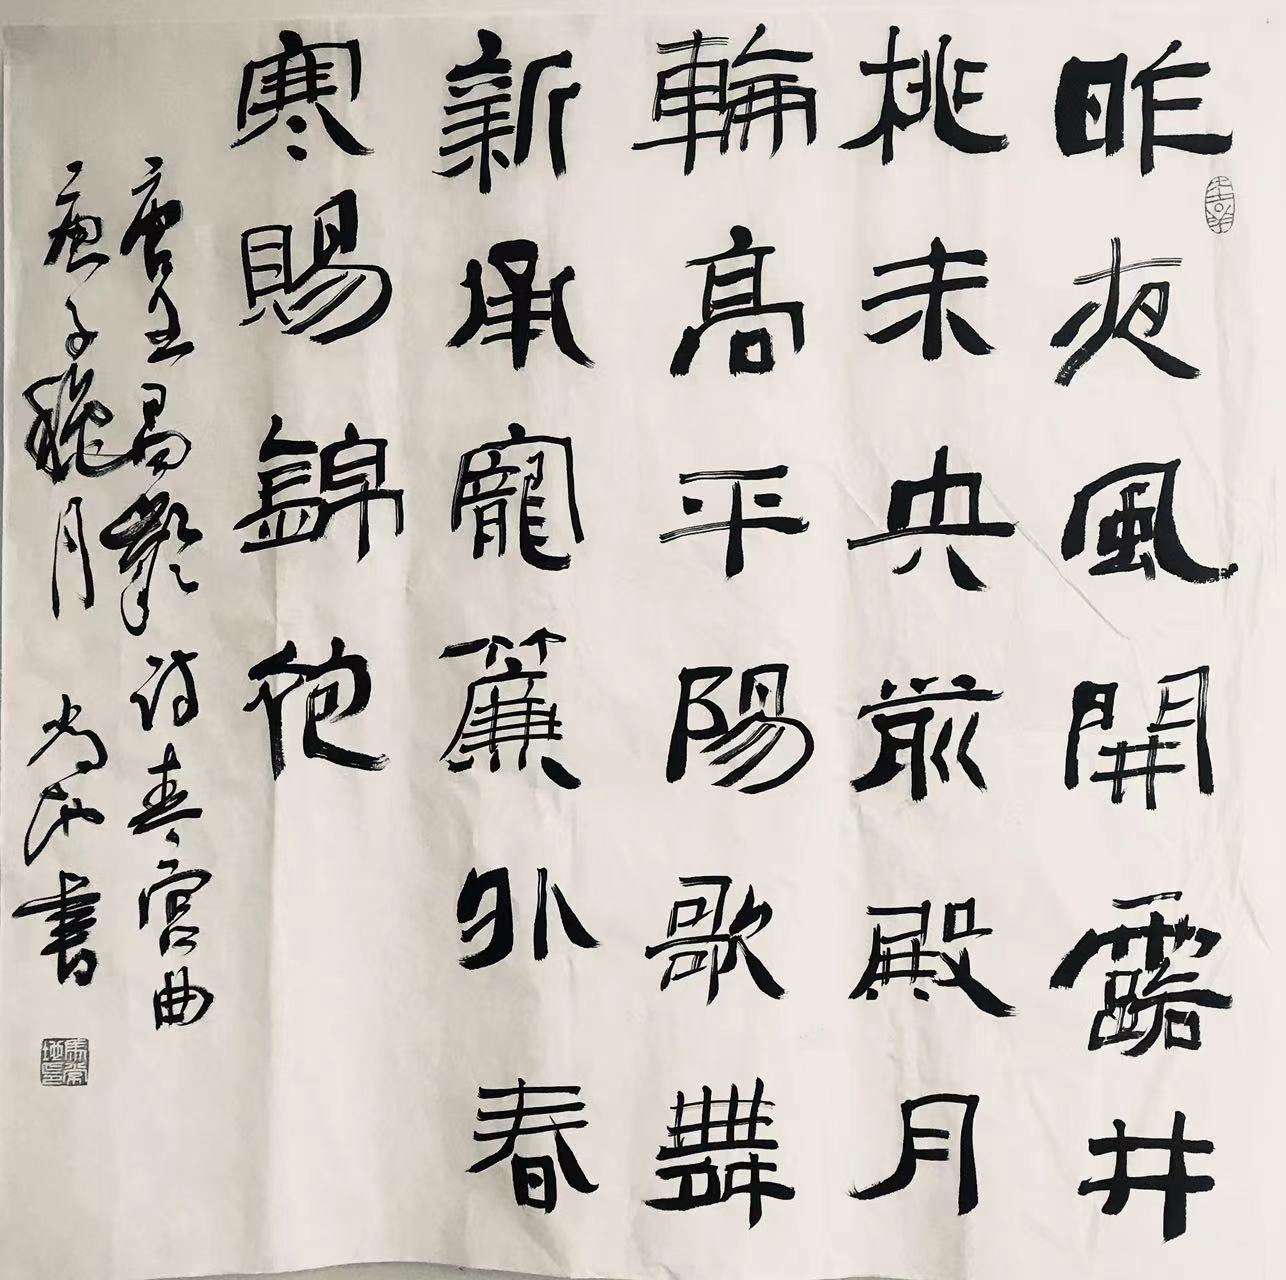 昨夜風開露井
桃未央前殿月
輪高平陽歌舞
新承寵簾外春
寒賜錦袍
唐王昌齡詩春宮曲
庚子穐月 書